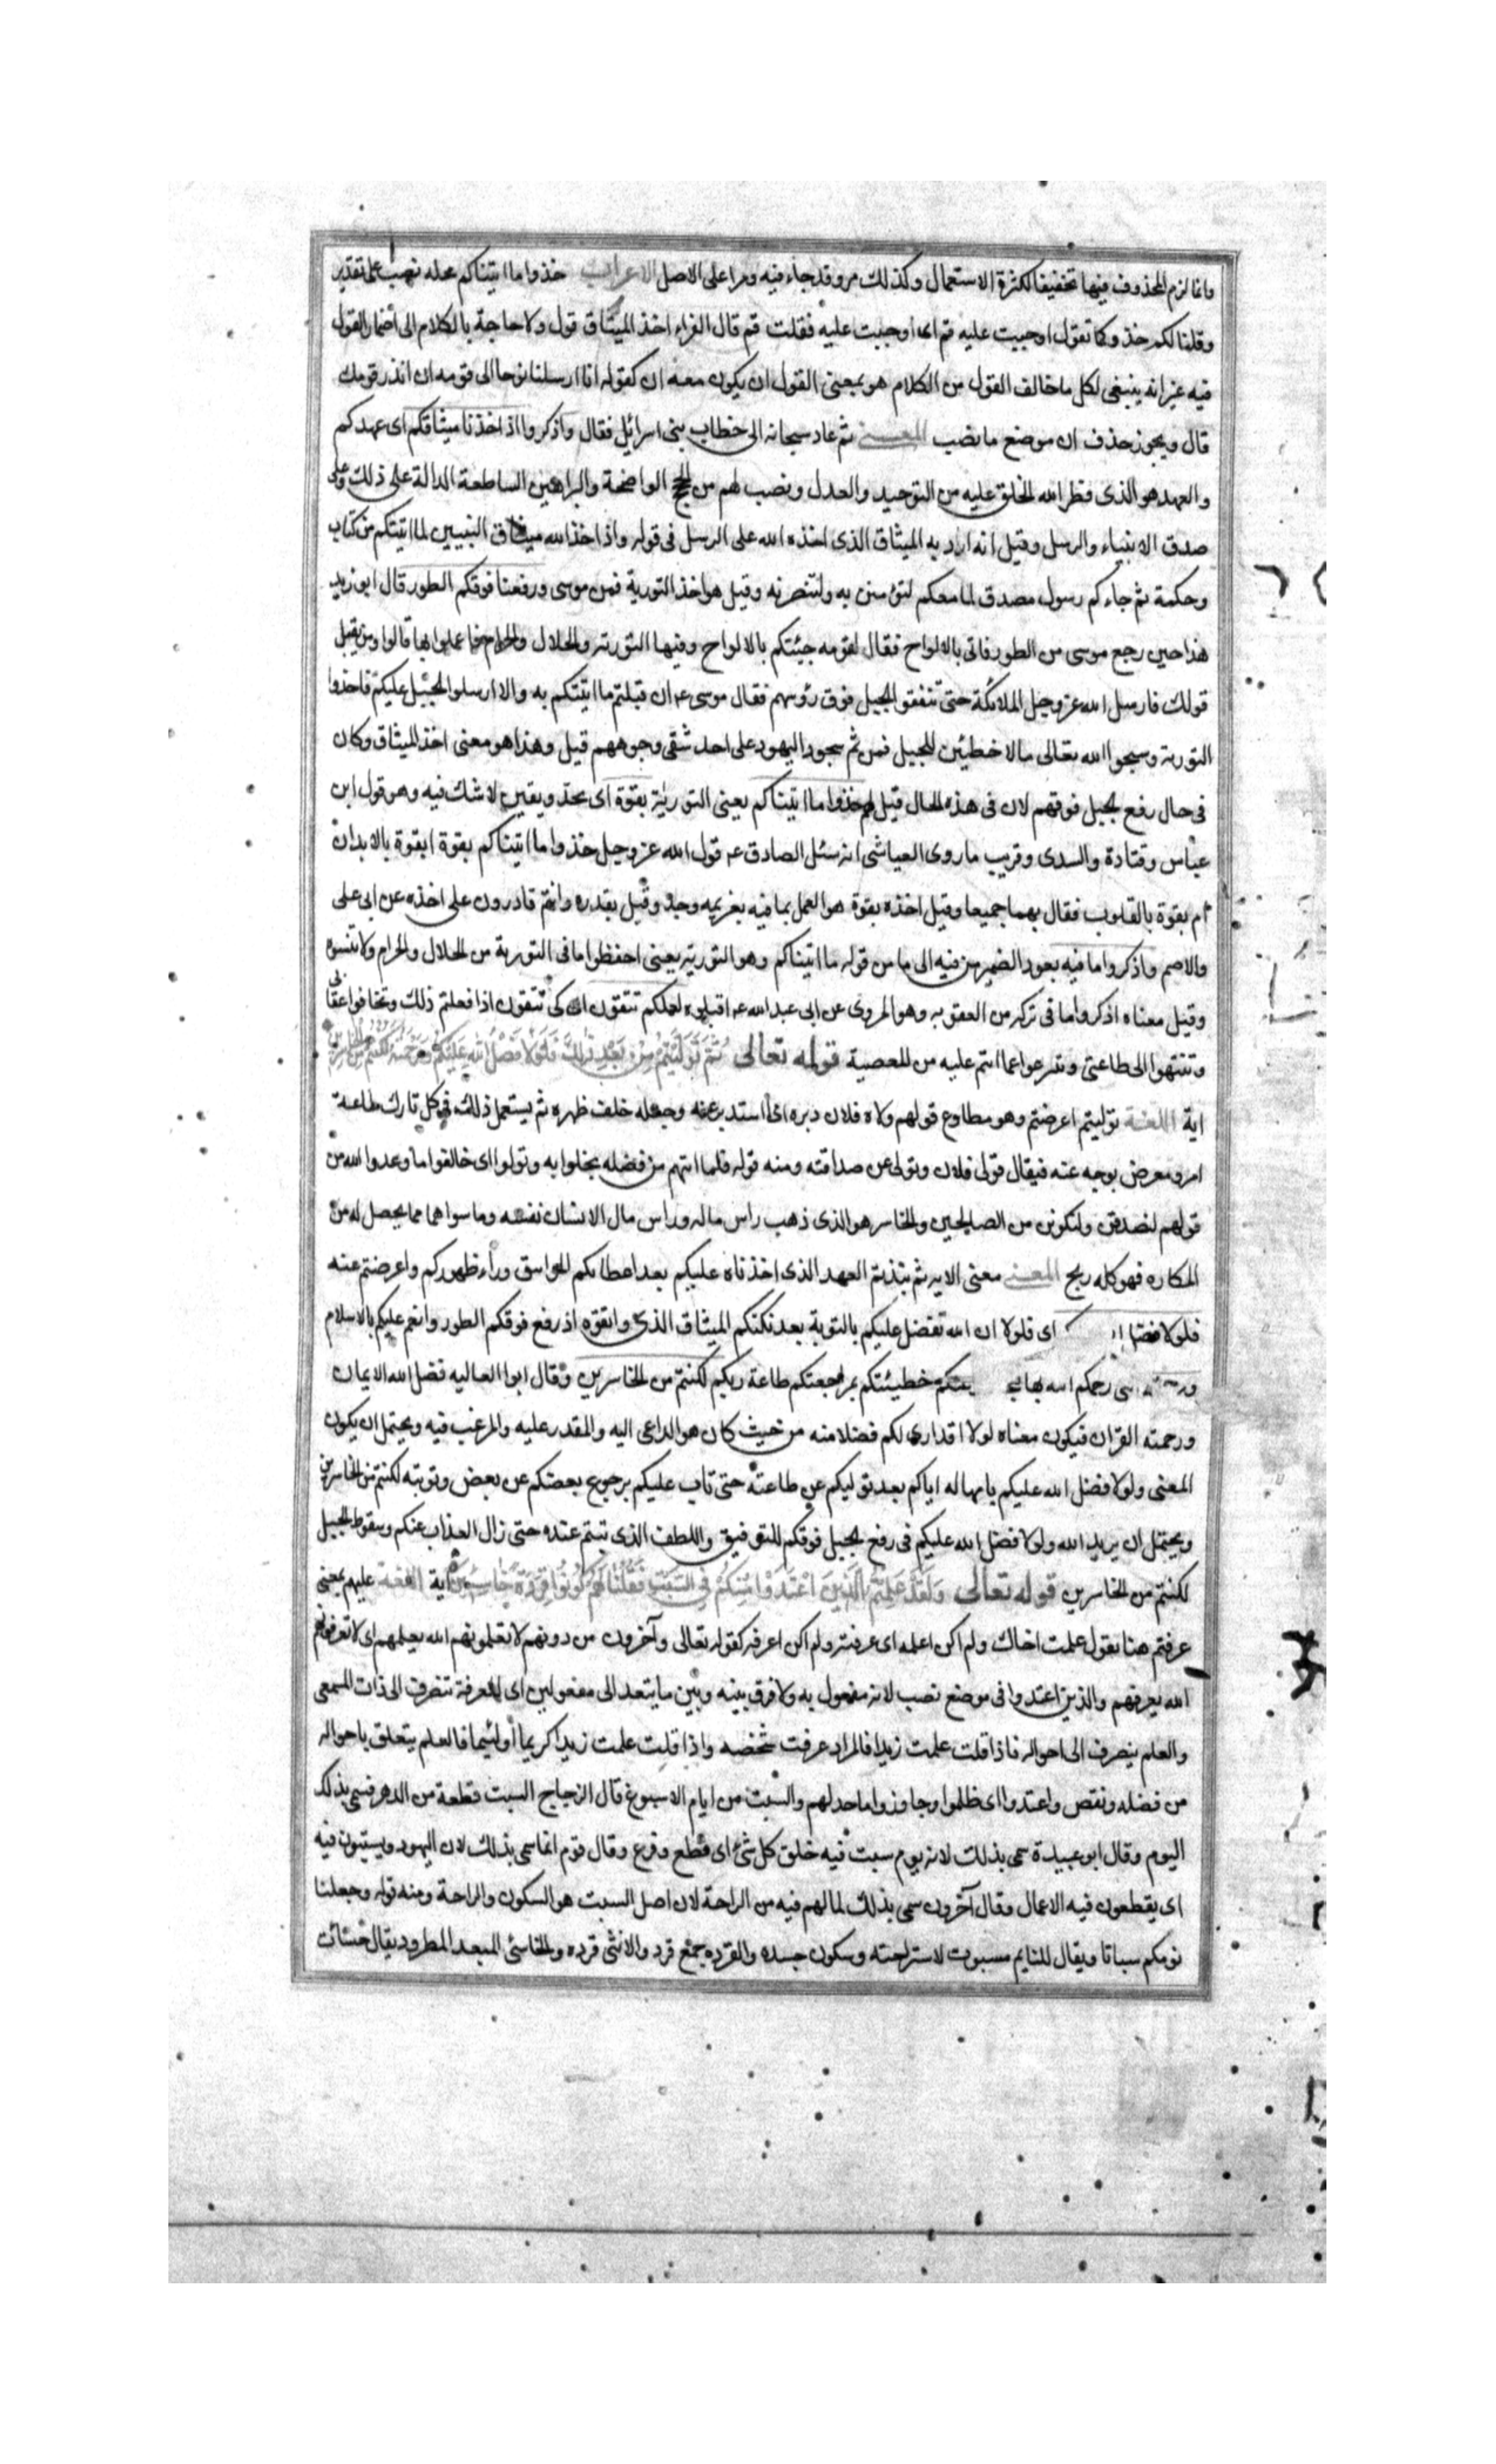 وانما لزم المحذوف فيها تخفيفا لكثرة الاستعمال وكذلك مر وقد جاء فيه ومر اعلى الاصل الاعراب خذوا ما اتيناكم محله نصب على تقدير
وقلنا لكم خذو كما تقول اوجبت عليه قم اى اوجبت عليه فقلت قم قال الفراء اخذ الميثاق قول ولا حاجة بالكلام الى اضمار القول
فيه غير انه ينبغى لكل ما خالف القول من الكلام هو بمعنى القول ان يكون معه ان كقوله انا ارسلنا نوحا الى قومه ان انذر قومك
قال ويجوز حذف ان موضع ما نصب المعنى ثم عاد سبحانه الى خطاب بنى اسرائيل فقال واذكروا اذ اخذنا ميثاقكم اى عهدكم
والعهد هو الذى فطر الله الخلق عليه من التوحيد والعدل ونصب لهم من الحجج الواضحة والبراهين الساطعة الدالة على ذلك وعلى
صدق الانبياء والرسل وقيل انه اراد به الميثاق الذى اخذه الله على الرسل فى قوله واذ اخذ الله ميثاق النبيين لما اتيتكم من كتاب
وحكمة ثم جاءكم رسول مصدق لما معكم لتؤمنن به ولتنصرنه وقيل هو اخذ التورية فمن موسى ورفعنا فوقكم الطور قال ابو زيد
هذا حين رجع موسى من الطور فاتى بالالواح فقال لقومه جيئتكم بالالواح وفيها التورته والحلال والحرام فاعملوا بها قالوا ومن يقبل
قولك فارسل الله عز وجل الملائكة حتى نتفقو الجبل فوق رؤسهم فقال موسى عم ان قبلتم ما اتيتكم به والا ارسلوا الجبل عليكم فاخذوا
التورته وسجوا الله تعالى مالاخطيئن للجبل فمن ثم سجود اليهود على احد شقى وجوههم قيل وهذا هو معنى اخذ الميثاق وكان
فى حال رفع الجبل فوقهم لان فى هذه الحال قيل لهم خذوا ما اتيناكم يعنى التورية بقوة اى بجد ويقين لا شك فيه وهو قول ابن
عباس وقتادة والسدى وقريب ما روى العياشى انه سئل الصادق عم قول الله عز وجل خذوا ما اتيناكم بقوة ابقوة بالابدان
ام بقوة بالقلوب فقال بهما جميعا وقيل اخذه بقوة هو العمل بما فيه بعزيمه وجد وقيل بقدره وانتم قادرون على اخذه عن ابى على
والاصم واذكروا ما فيه يعود الضمير من فيه الى ما من قوله ما اتيناكم وهو التوريه يعنى احفظوا ما فى التورية من الحلال والحرام ولا تنسوه
وقيل معناه اذكروا ما فى تركه من العقوبه وهو المروى عن ابى عبد الله عم اقبلوه لعلكم تتقون اى كى تتقون اذا فعلتم ذلك وتخافوا عقابى
وتنتهوا الى طاعتى وتنزعوا عما انتم عليه من المعصية قوله تعالى ثُمَّ تَوَلَّيْتُمْ مِنْ بَعْدِ ذٰلِكَ فَلَوْلَا فَضْلُ اللهِ عَلَيْكُمْ وَرَحْمَتُهُ لَكُنْتُمْ مِنَ الْخَاسِرِينَ
اية اللغة توليتم اعرضتم وهو مطاوع قولهم ولاه فلان دبره اى استدبر عنه وجعله خلف ظهره ثم يستعمل ذلك فى كل تارك طاعة
امر ومعرض بوجه عنه فيقال تولى فلان وتولى عن صداقته ومنه قوله فلما اتتهم من فضله بخلوا به وتولوا اى خالفوا ما وعدوا الله من
قولهم لنصدقن ولنكونن من الصالحين والخاسر هو الذى ذهب راس ماله وراس مال الانسان نفسه وما سواها مما يحصل له من
المكاره فهو كله ربح المعنى معنى الايه ثم نبذتم العهد الذى اخذناه عليكم بعد اعطائكم المواثيق وراء ظهوركم واعرضتم عنه
فلولا فضل اى فلولا ان الله تفضل عليكم بالتوبة بعد نكثكم الميثاق الذى واثقوه اذ رفع فوقكم الطور وانعم عليكم بالاسلام
رحمكم الله خطيئتكم بمراجعتكم طاعة ربكم لكنتم من الخاسرين وقال ابوا العاليه فضل الله الايمان
ورحمته القران فيكون معناه لولا اقدارى لكم فضلا منه من حيث كان هو الداعى اليه والمقدر عليه والمرغب فيه ويحتمل ان يكون
المعنى ولولا فضل الله عليكم بامهاله اياكم بعد توليكم عن طاعته حتى تاب عليكم برجوع بعضكم عن بعض وتوبته لكنتم من الخاسرين
ويحتمل ان يريد الله ولولا فضل الله عليكم فى رفع الجبل فوقكم للتوفيق واللطف الذى تبتم عنده حتى زال العذاب عنكم وسقوط الجبل
لكنتم من الخاسرين قوله تعالى وَلَقَدْ عَلِمْتُمُ الَّذِينَ اعْتَدَوْا مِنْكُمْ فِي السَّبْتِ فَقُلْنَا لَهُمْ كُونُوا قِرَدَةً خَاسِئِينَ اية اللغة علمتم بمعنى
عرفتم هنا تقول علمت اخاك ولم اكن اعلمه اى عرفته ولم اكن اعرفه كقوله تعالى وآخرون من دونهم لا تعلمونهم الله يعلمهم اى لا تعرفونهم
الله يعرفهم والذين اعتدوا فى موضع نصب لانه مفعول به ولا فرق بينه وبين ما يتعد الى مفعولين اى المعرفة تنصرف الى ذات المسمى
والعلم ينصرف الى احواله فاذا قلت علمت زيدا فالمراد عرفت شخصه واذا قلت علمت زيدا كريما أو لئيما فالعلم يتعلق باحواله
من فضله ونقص واعتدوا اى ظلموا وجاوزوا ما حد لهم والسبت من ايام الاسبوع قال الزجاج السبت قطعة من الدهر فسمى بذلك
اليوم وقال ابو عبيدة سمى بذلك لانه يوم سبت فيه خلق كل شئ اى قطع وفرع وقال قوم انما سمى بذلك لان اليهود يسبتون فيه
اى يقطعون فيه الاعمال وقال آخرون سمى بذلك لما لهم فيه من الراحة لان اصل السبت هو السكون والراحة ومنه قوله وجعلنا
نومكم سباتا ويقال للنايم مسبوت لاستراحته وسكون جسده والقرده جمع قرد والانثى قرده والخاسئ المبعد المطرود يقال خسئات